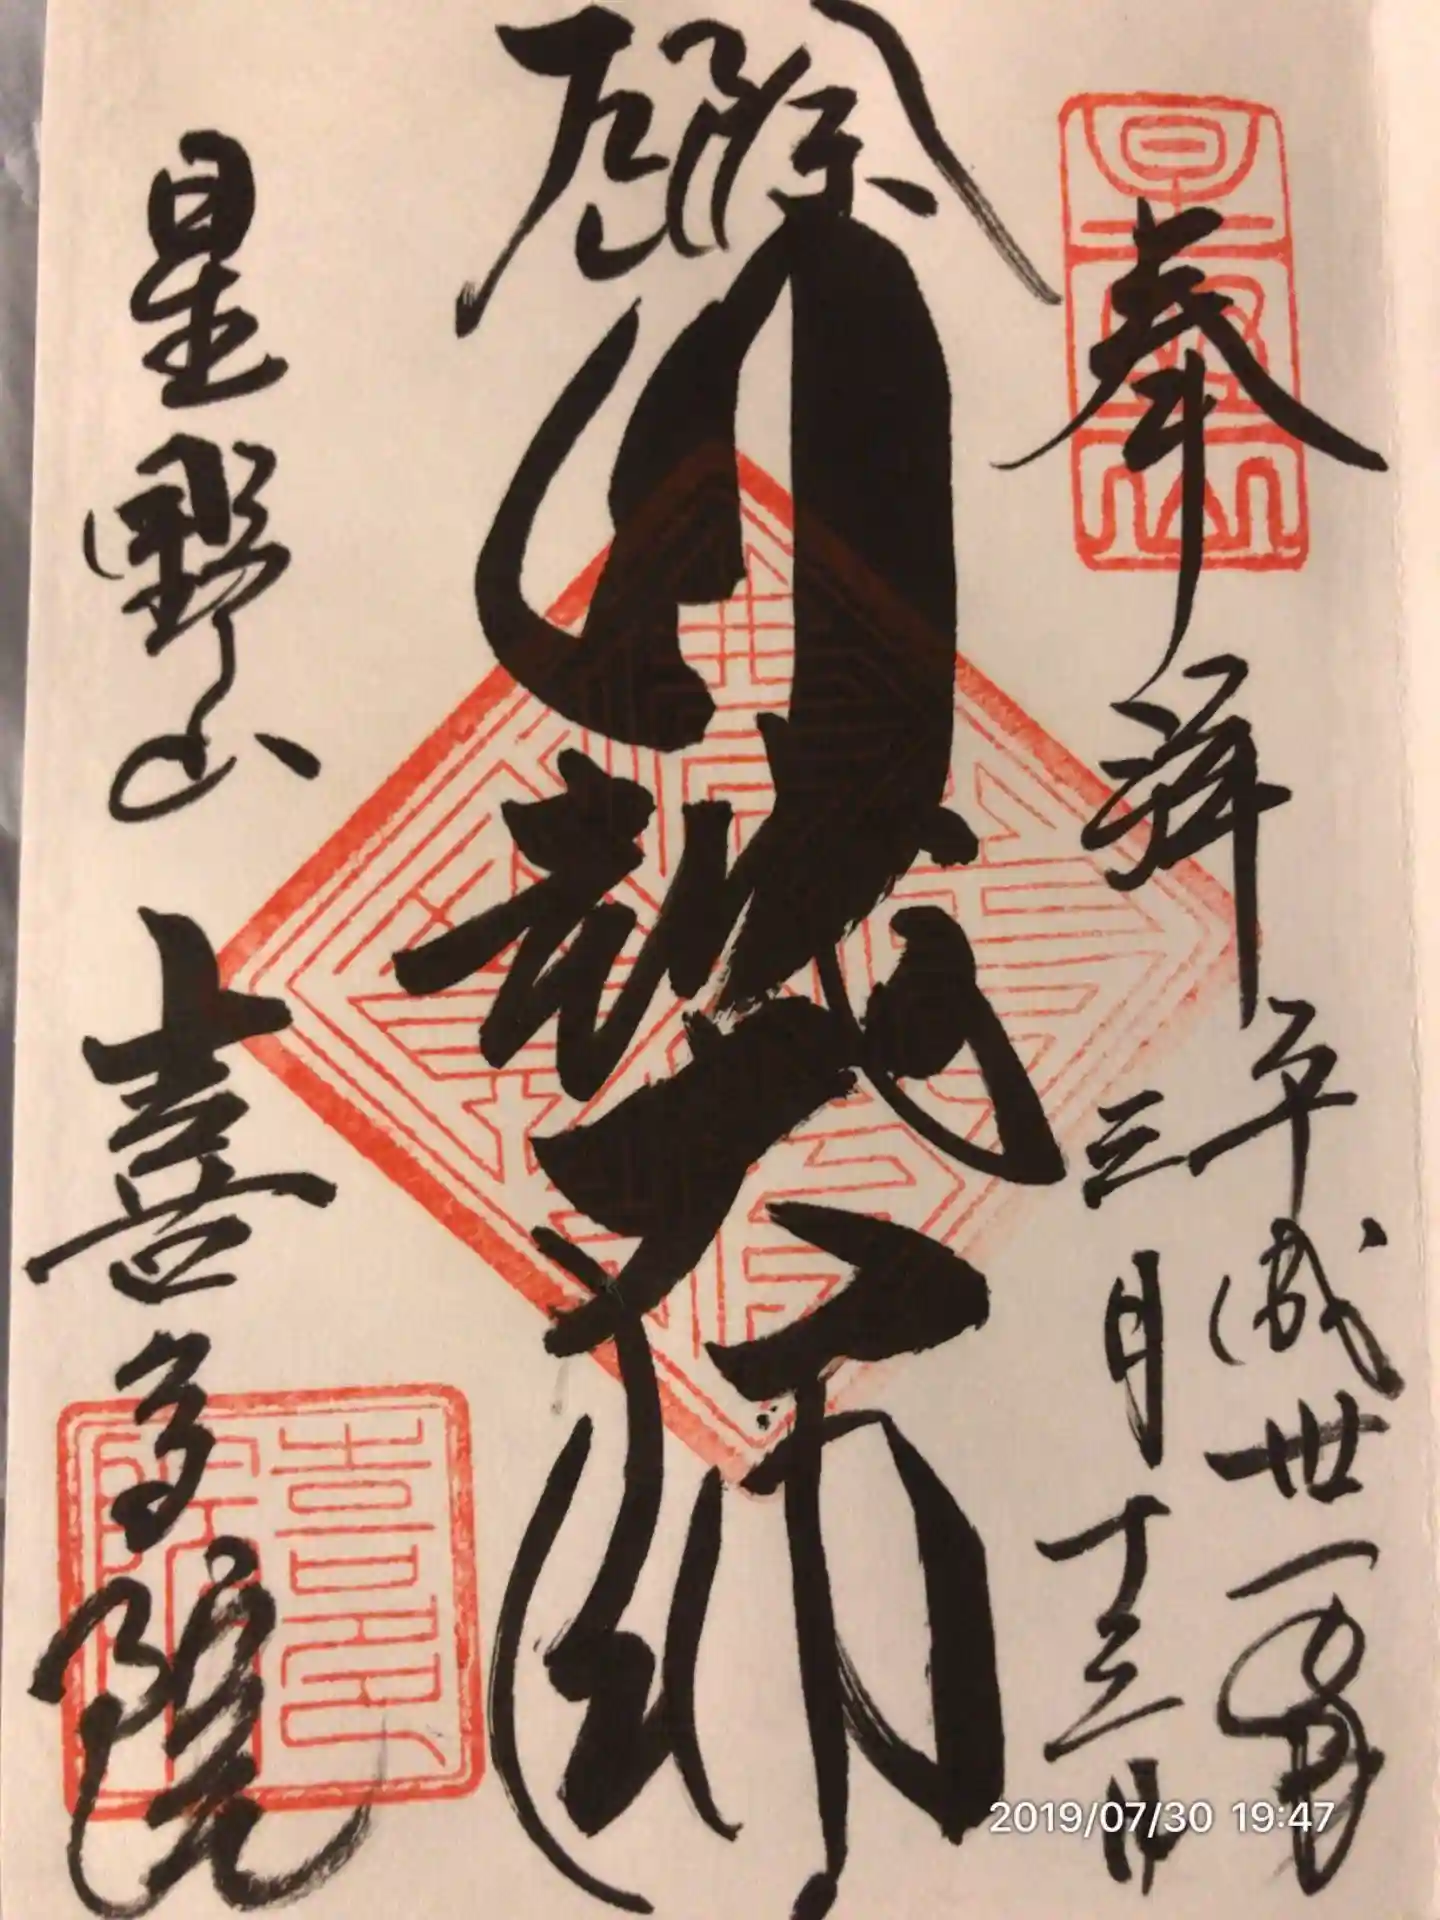 奉拝
平成丗一年
三月十三日
厄除
川越大師
星野山
喜多院
星野山
喜多院
2019/07/30 19:47